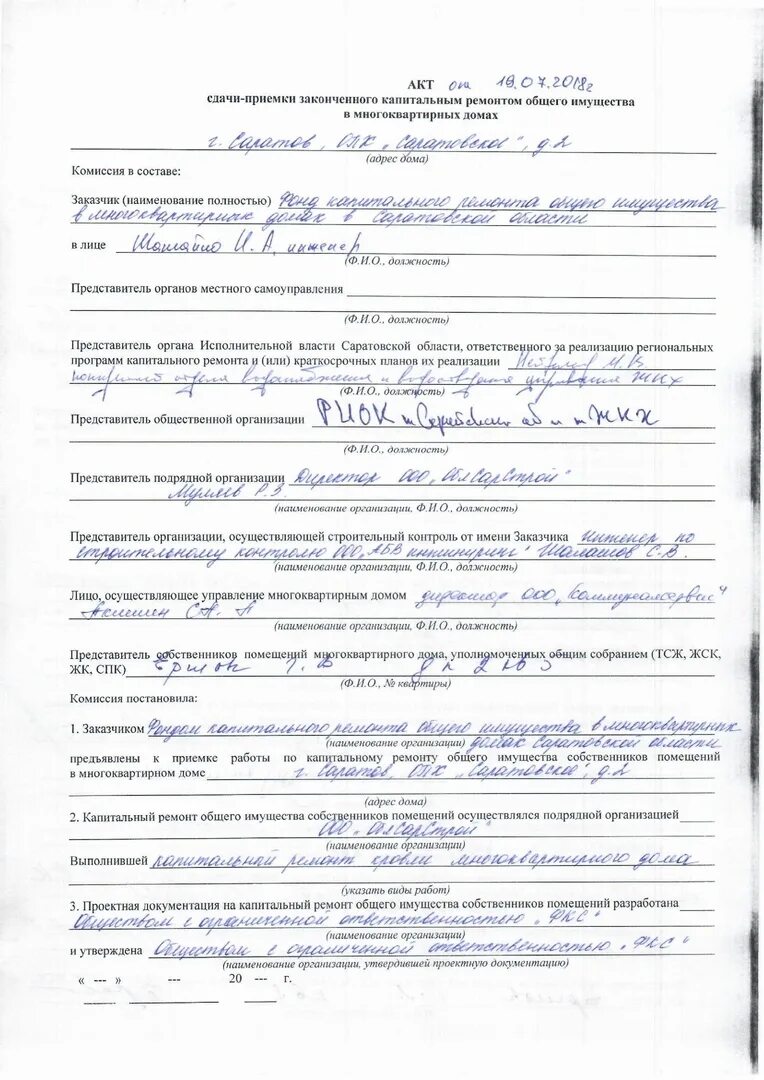 АКТ от 19.07.2018г
сдачи-приемки законченного капитальным ремонтом общего имущества
в многоквартирных домах
г. Саратов, ОПК „Саратовское", д.2
(адрес дома)
Комиссия в составе:
Заказчик (наименование полностью) Фонд капитального ремонта общего имущества
в многоквартирных домах в Саратовской области
в лице И. А, инженер
(Ф.И.О., должность)
Представитель органов местного самоуправления
(Ф.И.О., должность)
Представитель органа Исполнительной власти Саратовской области, ответственного за реализацию региональных
программ капитального ремонта и (или) краткосрочных планов их реализации М. В
отдела водоснабжения и водоотведения управления ЖКХ
(Ф.И.О., должность)
Представитель общественной организации ЖКХ
(Ф.И.О., должность)
Представитель подрядной организации Директор ООО „ОблСарСтрой"
Муллев Р.З.
(наименование организации, Ф.И.О., должность)
Представитель организации, осуществляющей строительный контроль от имени Заказчика Инженер по
строительному контролю ООО „АБВ инжиниринг" Шалашов С.В.
(наименование организации, Ф.И.О., должность)
Лицо, осуществляющее управление многоквартирным домом директор ООО „Коммуналсервис"
(наименование организации, Ф.И.О., должность)
Представитель собственников помещений многоквартирного дома, уполномоченных общим собранием (ТСЖ, ЖСК,
ЖК, СПК)
(Ф.И.О., № квартиры)
Комиссия постановила:
1. Заказчиком Фондом капитального ремонта общего имущества в многоквартирных
(наименование организации) домах Саратовской области
предъявлены к приемке работы по капитальному ремонту общего имущества собственников помещений
в многоквартирном доме г. Саратов, ОПК „Саратовское", д.2
(адрес дома)
2. Капитальный ремонт общего имущества собственников помещений осуществлялся подрядной организацией
ООО „ОблСарСтрой"
(наименование организации)
Выполнившей капитальный ремонт кровли многоквартирного дома
(указать виды работ)
3. Проектная документация на капитальный ремонт общего имущества собственников помещений разработана
Обществом с ограниченной ответственностью „ФКС"
(наименование организации)
и утверждена Обществом с ограниченной ответственностью „ФКС"
(наименование организации, утвердившей проектную документацию)
« --- » --- 20 --- г.